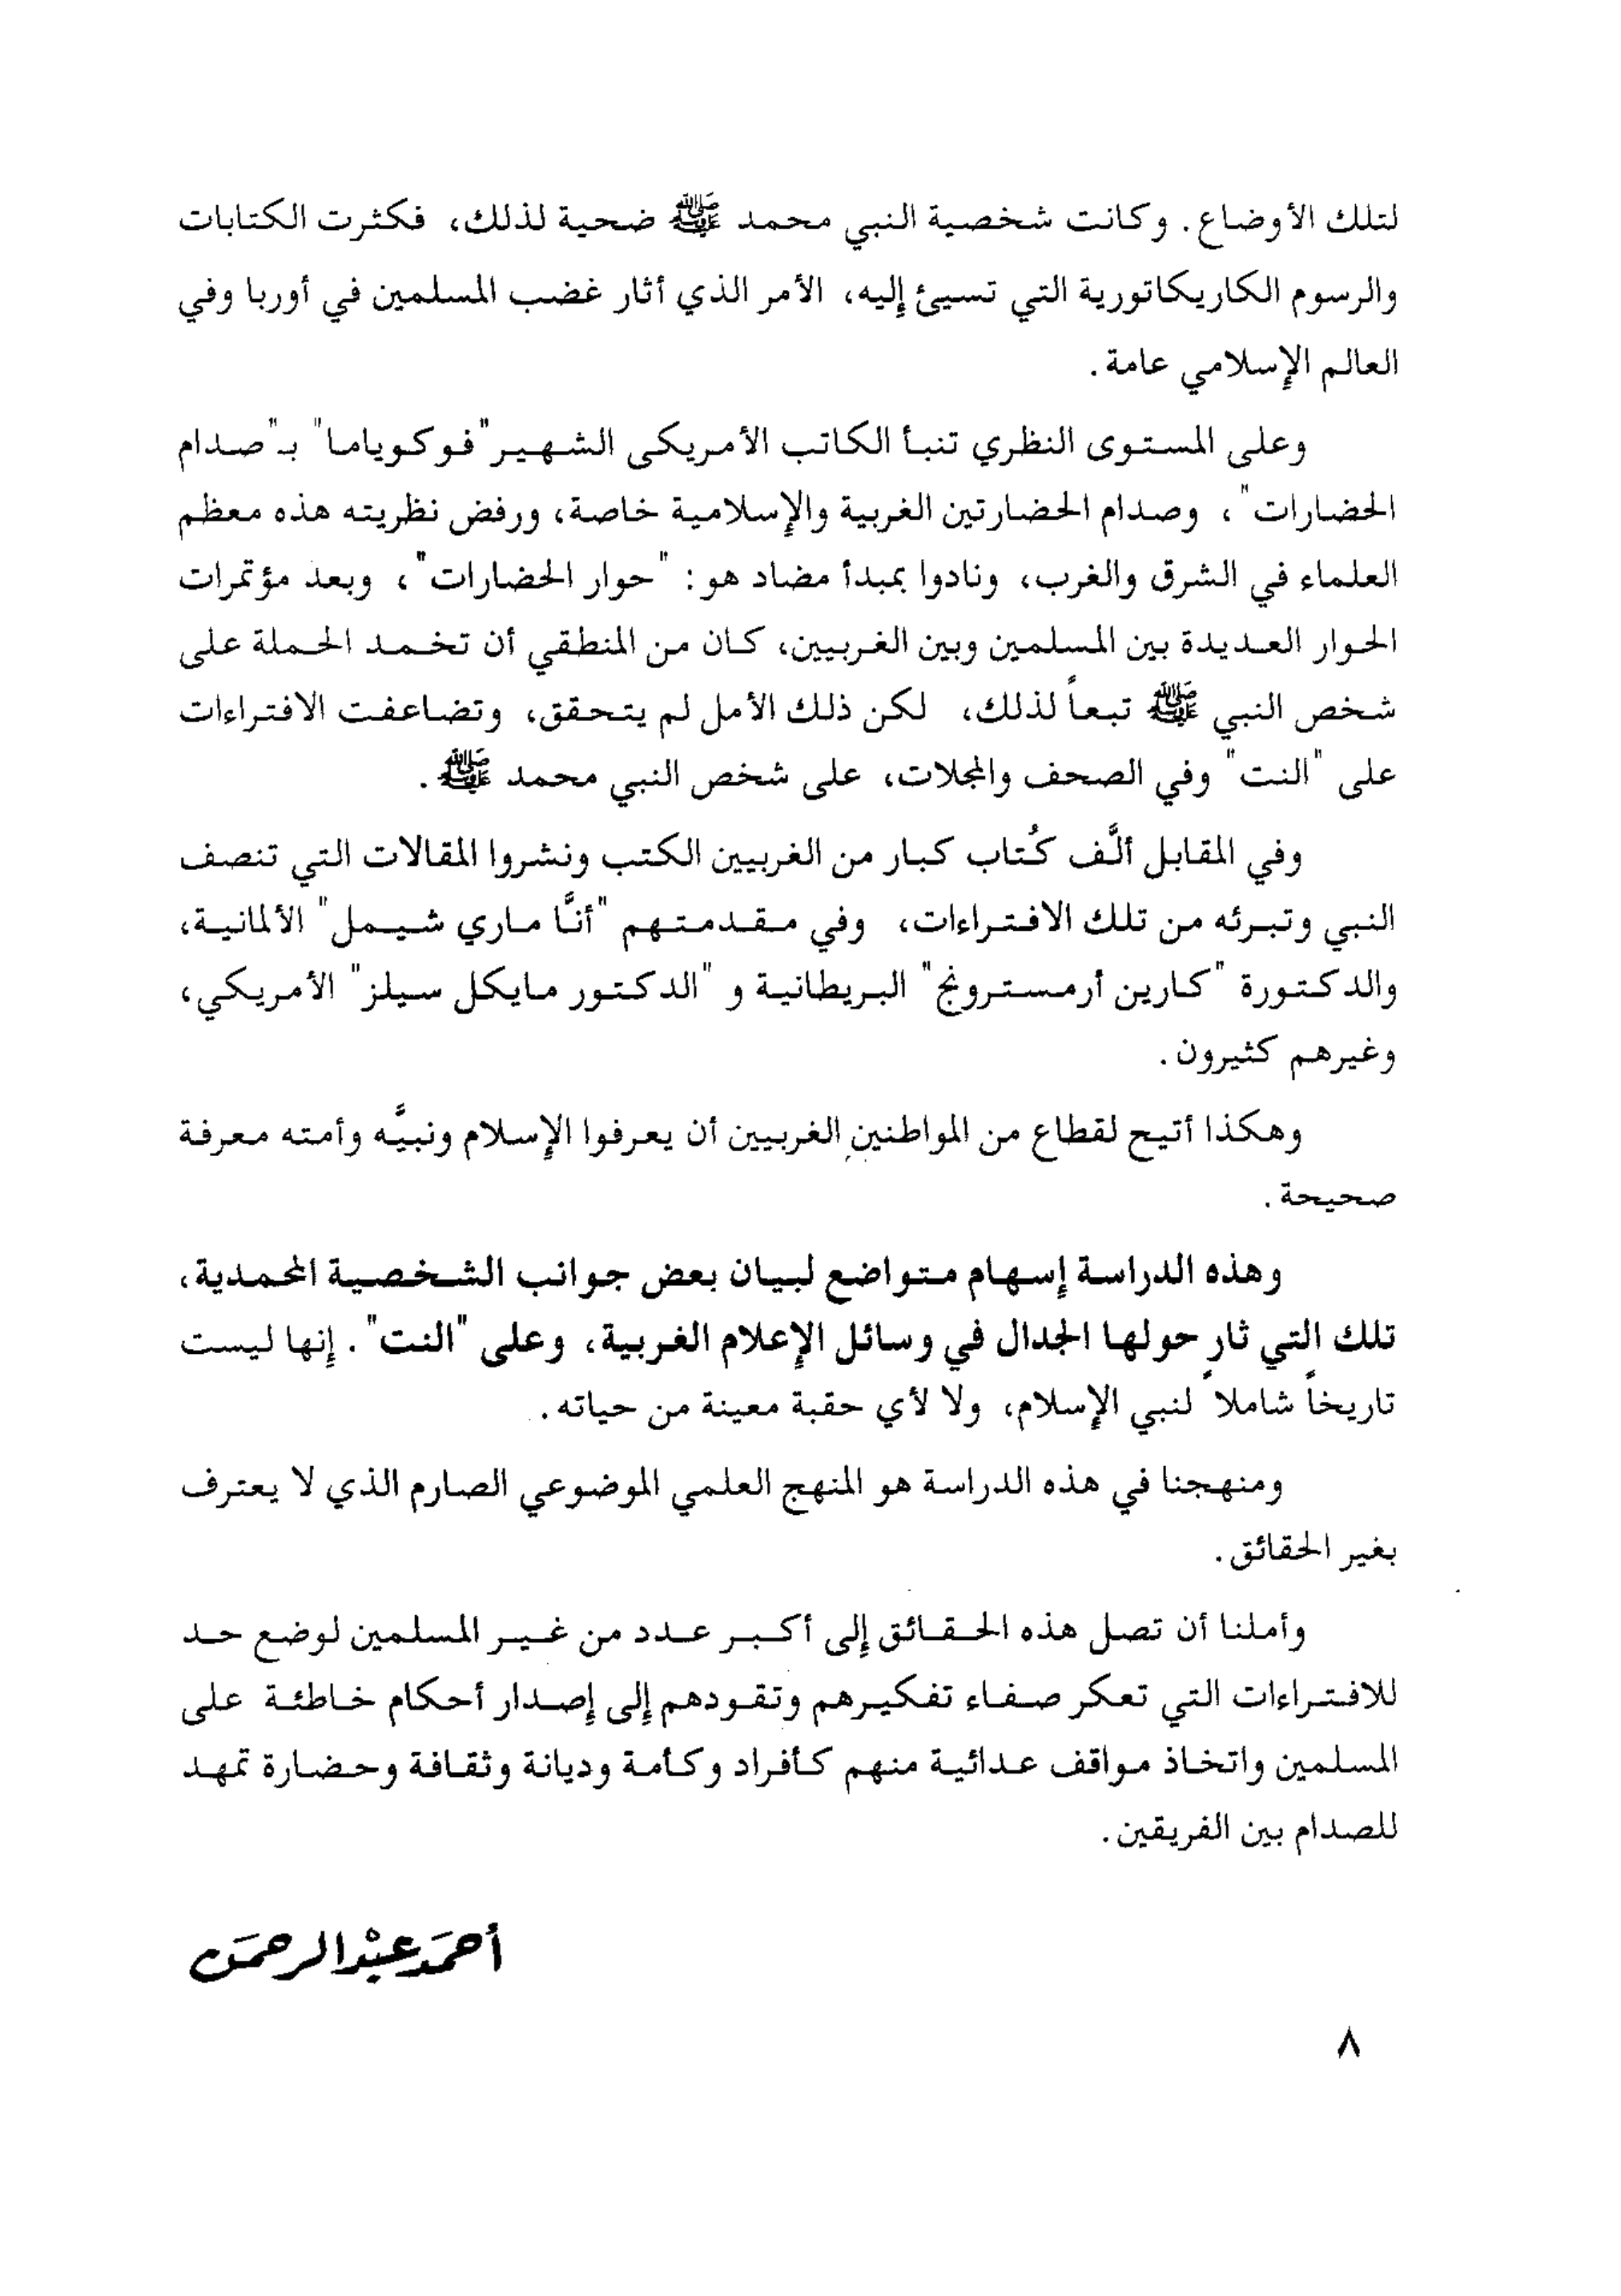 لتلك الأوضاع. وكانت شخصية النبي محمد ﷺ ضحية لذلك، فكثرت الكتابات
والرسوم الكاريكاتورية التي تسيئ إليه، الأمر الذي أثار غضب المسلمين في أوربا وفي
العالم الإسلامي عامة.
وعلى المستوى النظري تنبأ الكاتب الأمريكى الشهير"فوكوياما" بـ"صدام
الحضارات"، وصدام الحضارتين الغربية والإسلامية خاصة، ورفض نظريته هذه معظم
العلماء في الشرق والغرب، ونادوا بمبدأ مضاد هو: "حوار الحضارات"، وبعد مؤتمرات
الحوار العديدة بين المسلمين وبين الغربيين، كان من المنطقي أن تخمد الحملة على
شخص النبي ﷺ تبعاً لذلك، لكن ذلك الأمل لم يتحقق، وتضاعفت الافتراءات
على "النت" وفي الصحف والمجلات، على شخص النبي محمد ﷺ.
وفي المقابل ألَّف كُتاب كبار من الغربيين الكتب ونشروا المقالات التي تنصف
النبي وتبرئه من تلك الافتراءات، وفي مقدمتهم "أنَّا ماري شيمل" الألمانية،
والدكتورة "كارين أرمسترونج" البريطانية و "الدكتور مايكل سيلز" الأمريكي،
وغيرهم كثيرون.
وهكذا أتيح لقطاع من المواطنين الغربيين أن يعرفوا الإسلام ونبيَّه وأمته معرفة
صحيحة.
وهذه الدراسة إسهام متواضع لبيان بعض جوانب الشخصية المحمدية،
تلك التي ثار حولها الجدال في وسائل الإعلام الغربية، وعلى "النت". إنها ليست
تاريخاً شاملاً لنبي الإسلام، ولا لأي حقبة معينة من حياته.
ومنهجنا في هذه الدراسة هو المنهج العلمي الموضوعي الصارم الذي لا يعترف
بغير الحقائق.
وأملنا أن تصل هذه الحقائق إلى أكبر عدد من غير المسلمين لوضع حد
للافتراءات التي تعكر صفاء تفكيرهم وتقودهم إلى إصدار أحكام خاطئة على
المسلمين واتخاذ مواقف عدائية منهم كأفراد وكأمة وديانة وثقافة وحضارة تمهد
للصدام بين الفريقين.
أحمَد عبْد الرحمَن
٨